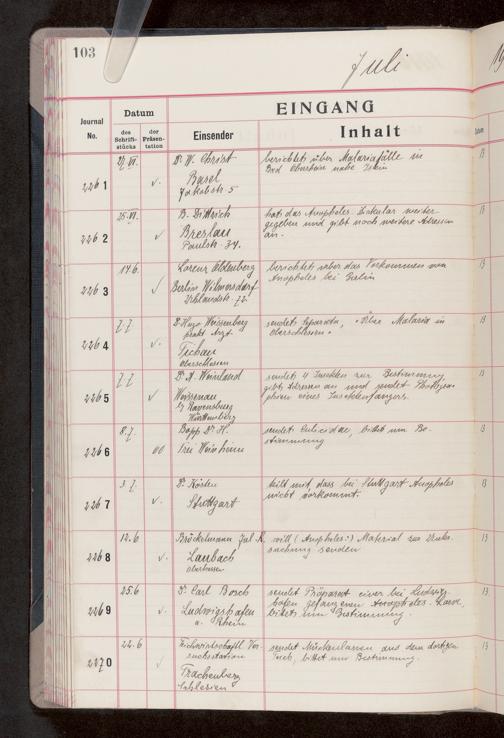 103
Juli
EINGANG
Journal No.
Datum
des Schriftstücks
der Präsentation
Einsender
Inhalt
Datum
2261
Dr. W. Christ
Basel
berichtet über Malariafälle in
2262
25.VI.
B. Dittrich
Breslau
Paulstr. 34.
hat das Anopheles-Zirkular weiter-
gegeben und gibt noch weitere Adressen
an.
2263
14.6.
Lorenz Oldenberg
Berlin Wilmersdorf
Uhlandstr.
berichtet über das Vorkommen von
Anopheles bei Berlin
2264
7.7.
Dr. Hugo
prakt. Arzt
Oberschlesien
sendet Separata, "Über Malaria in
Oberschlesien"
2265
7.7.
Weissenau
b/ Ravensburg
Württemberg
sendet 4 Insekten zur Bestimmung
gibt Adressen an und sendet Photogra-
phien eines Insektenfängers.
2266
8.7.
Bopp Dr. H.
Frei Weinheim
sendet Culicidae, bittet um Be-
stimmung
2267
3.7.
Dr. Kösten
Stuttgart
teilt mit, dass bei Stuttgart Anopheles
nicht vorkommt.
2268
12.6
Brückelmann
Laubach
Oberhessen
will (Anopheles?) Material zur Unter-
suchung senden
2269
25.6
Dr. Carl Bosch
Ludwigshafen
a. Rhein
sendet Präparat einer bei Ludwigs-
hafen gefangenen Anopheles-Larve,
bittet um Bestimmung.
2270
22.6
Teichwirtschaftl. Ver-
suchsstation
Trachenberg
Schlesien
sendet Mückenlarven aus dem dortigen
Teich, bittet um Bestimmung.